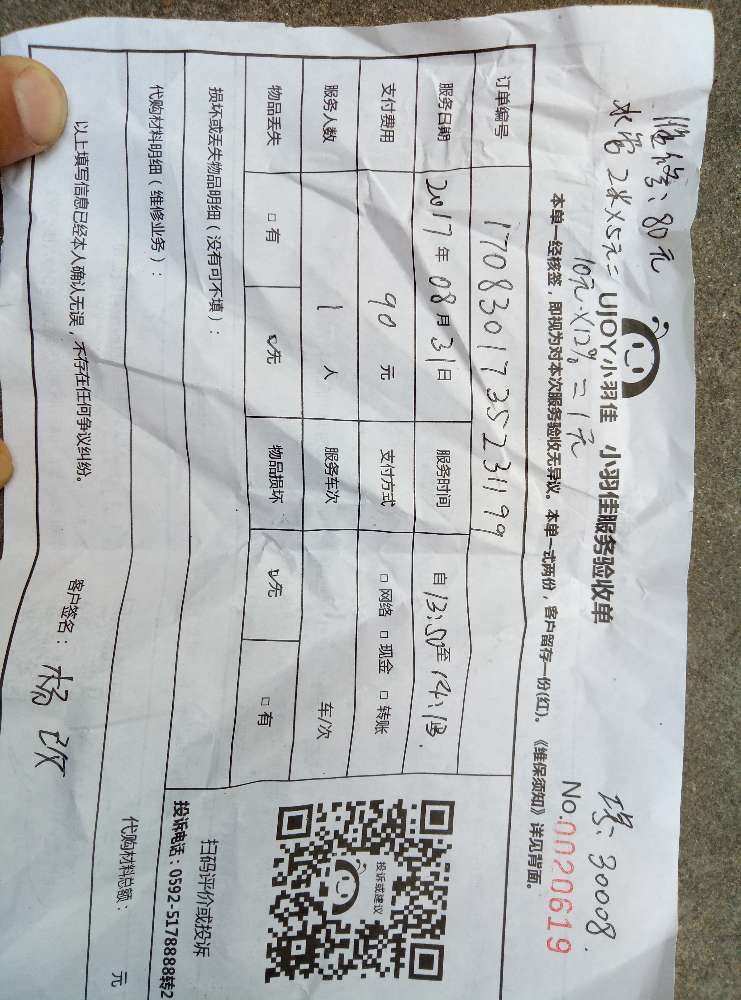 维修：80元
水管2米X5元=
10元X12%=1元
工号：30008.
UJOY小羽佳 小羽佳服务验收单
No.0020619
本单一经核签，即视为对本次服务验收无异议。本单一式两份，客户留存一份(红)。《维保须知》详见背面。
订单编号 1708301735231199
服务日期 2017年08月31日 服务时间 自13:50至14:13.
支付费用 90元 支付方式 □网络 □现金 □转账
服务人数 1人 服务车次 车/次
物品丢失 □有 ☑无 物品损坏 ☑无 □有
损坏或丢失物品明细（没有可不填）：
扫码评价或投诉
投诉电话：0592-5178888转2
投诉或建议
代购材料明细（维修业务）：
代购材料总额： 元
以上填写信息已经本人确认无误，不存在任何争议纠纷。
客户签名：杨